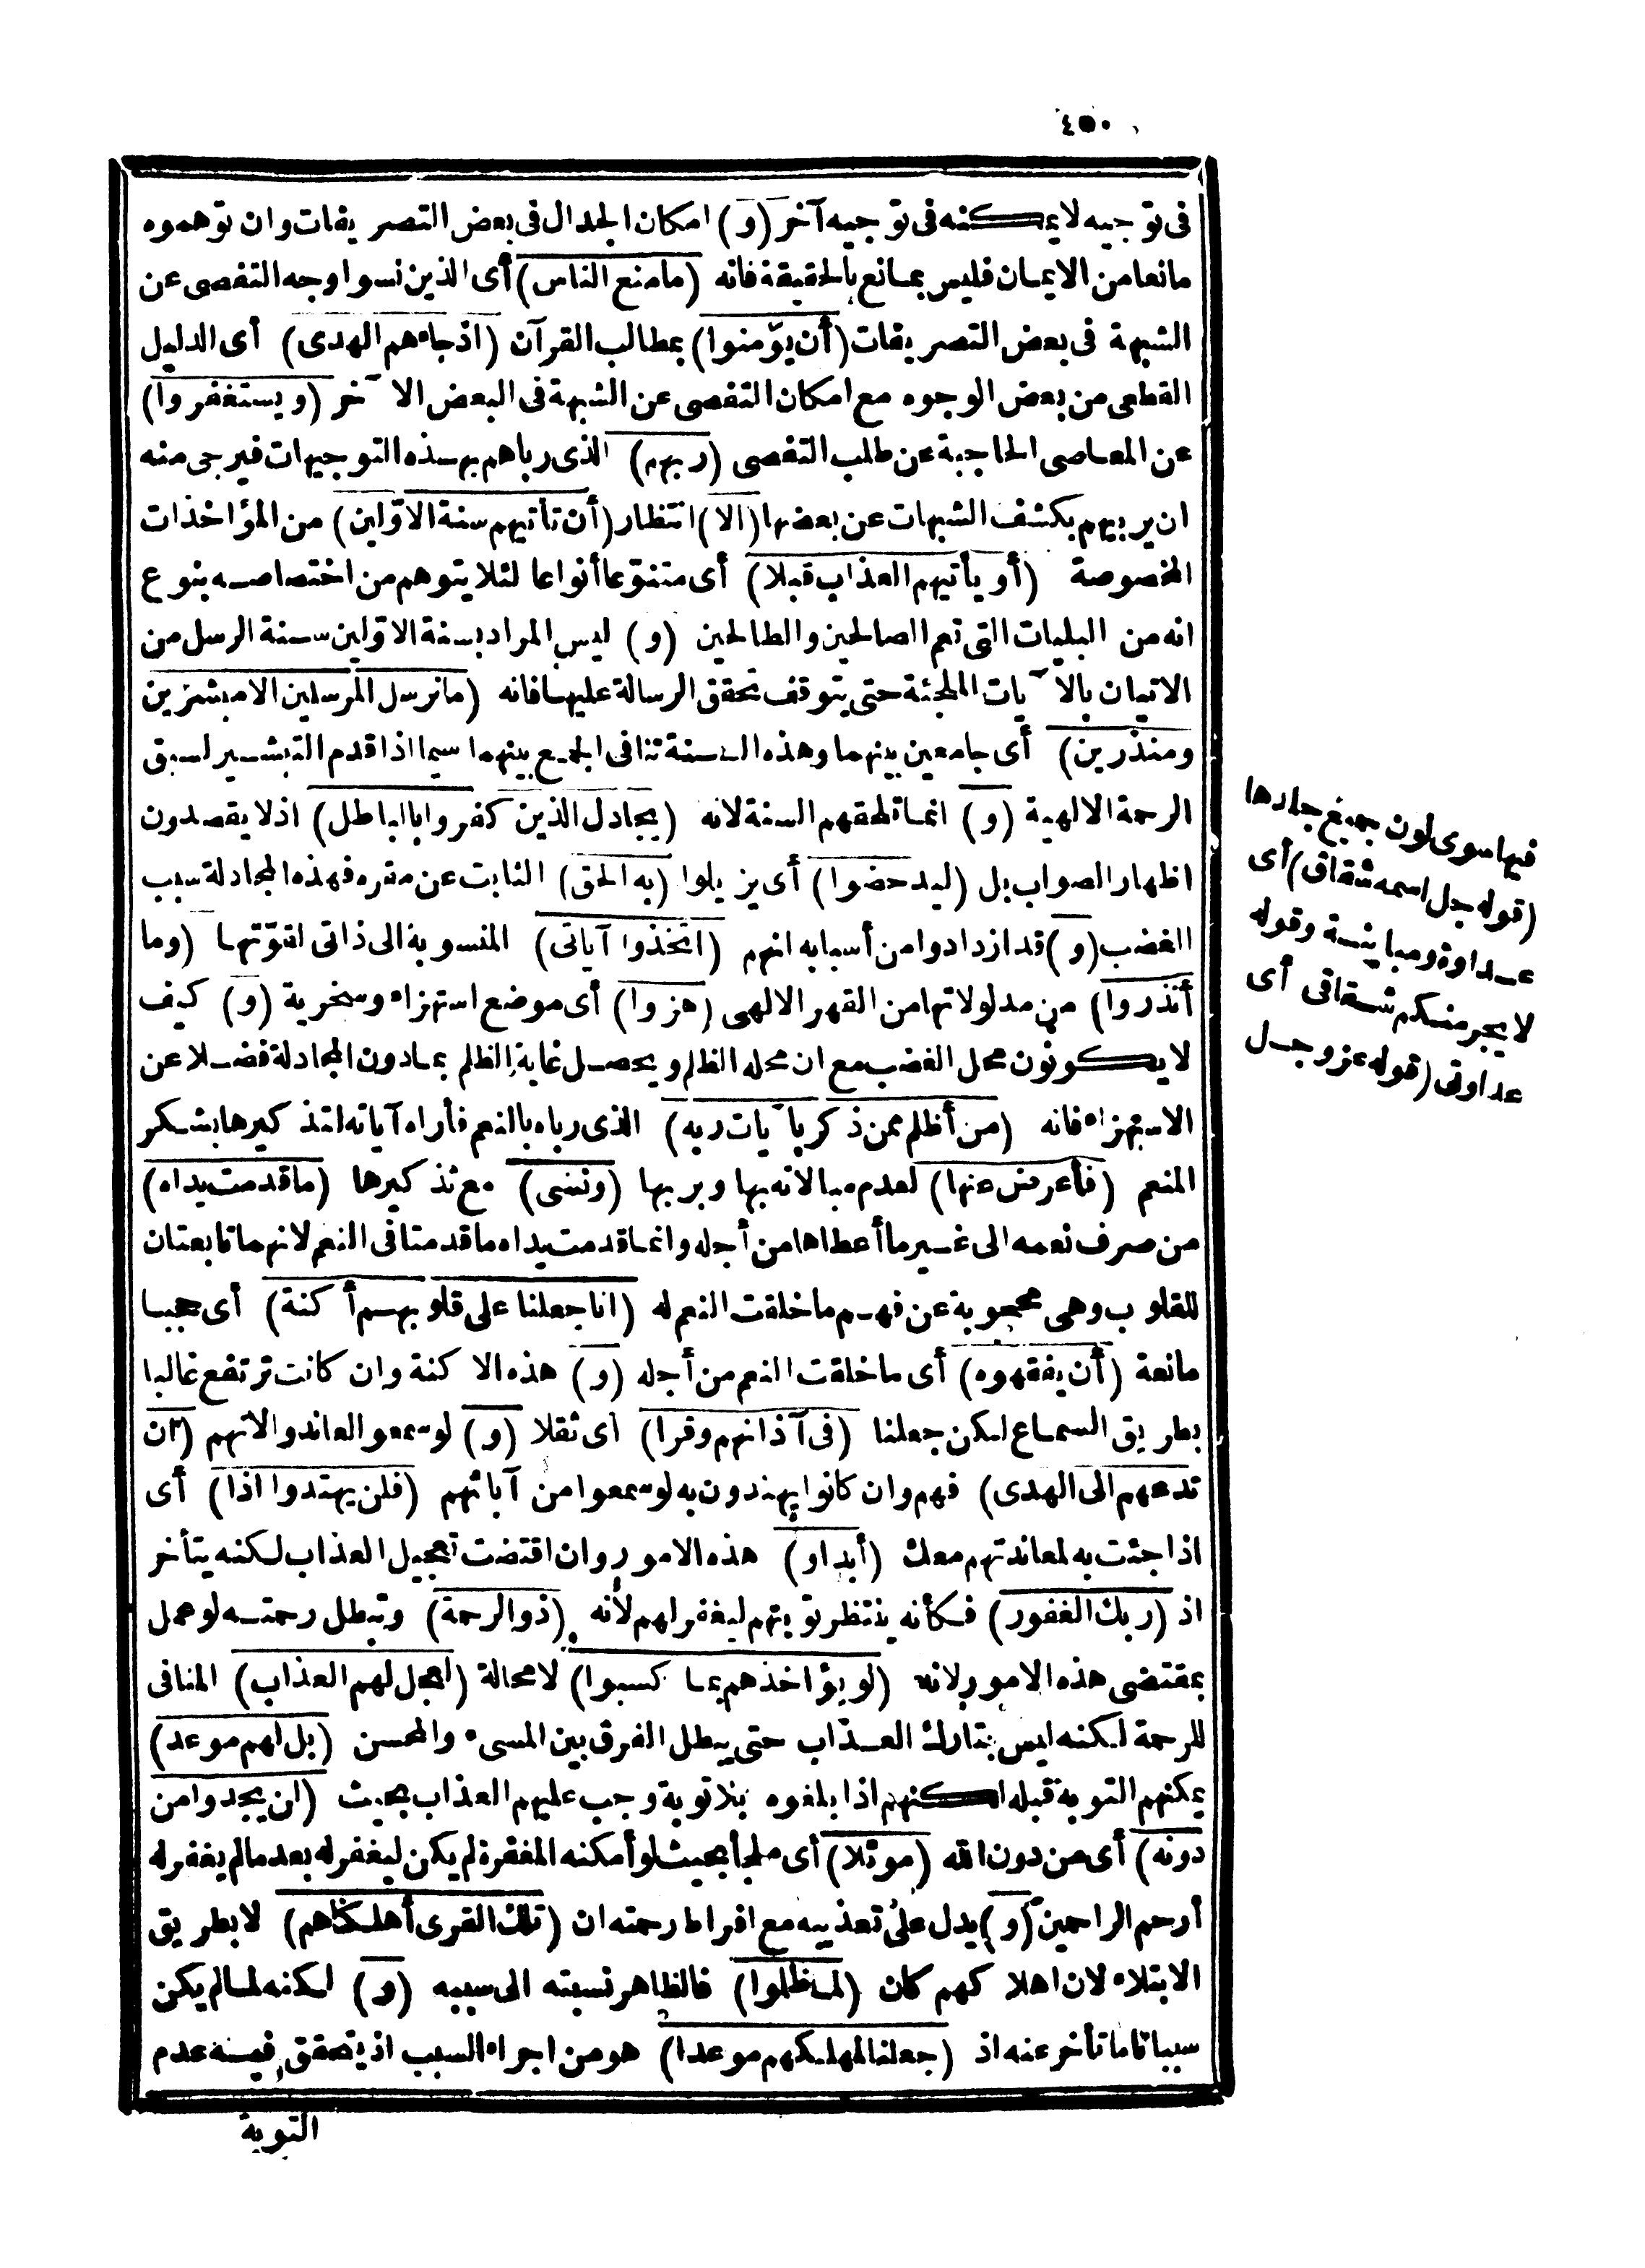 ٤٥٠
فى توجيه لا يمكنه فى توجيه آخر (و) امكان الجدال فى بعض التصريفات وان توهموه
مانعا من الايمان فليس بمانع بالحقيقة فانه (مامنع الناس) أى الذين نسوا وجه التفصى عن
الشبهة فى بعض التصريفات (أن يؤمنوا) بمطالب القرآن (اذ جاءهم الهدى) أى الدليل
القطعى من بعض الوجوه مع امكان التفصى عن الشبهة فى البعض الآخر (ويستغفروا)
عن المعاصى الحاجبة عن طلب التفصى (ربهم) الذى رباهم بهذه التوجيهات فيرجى منه
ان يربيهم بكشف الشبهات عن بعضها (الا) انتظار (أن تأتيهم سنة الاوّلين) من المؤاخذات
المخصوصة (أو يأتيهم العذاب قبلا) أى متنوّعا أنواعا لئلا يتوهم من اختصاصه بنوع
انه من البليات التى تعم الصالحين والطالحين (و) ليس المراد بسنة الاوّلين سنة الرسل من
الاتيان بالآيات الملجئة حتى يتوقف تحقق الرسالة عليها فانه (مانرسل المرسلين الا مبشرين
ومنذرين) أى جامعين بينهما وهذه السنة تنافى الجمع بينهما سيما اذا قدم التبشير لسبق
الرحمة الالهية (و) انما تلحقهم السنة لانه (يجادل الذين كفروا بالباطل) اذ لا يقصدون
اظهار الصواب بل (ليدحضوا) أى يزيلوا (به الحق) الثابت عن مقره فهذه المجادلة سبب
الغضب (و) قد ازدادوا من أسبابه انهم (اتخذوا آياتى) المنسوبة الى ذاتى لقوّتها (وما
أنذروا) من مدلولاتها من القهر الالهى (هزوا) أى موضع استهزاء وسخرية (و) كيف
لا يكونون محل الغضب مع ان محله الظلم ويحصل غاية الظلم بمادون المجادلة فضلا عن
الاستهزاء فانه (من أظلم ممن ذكر بآيات ربه) الذى رباه بالنعم فأراه آياته لتذكيرها بشكر
المنعم (فأعرض عنها) لعدم مبالاته بها وبربها (ونسى) مع تذكيرها (ماقدمت يداه)
من صرف نعمه الى غير ما أعطاها من أجله وانما قدمت يداه ما قدمتا فى النعم لانهما تابعتان
للقلوب وهى محجوبة عن فهم ما خلقت النعم له (انا جعلنا على قلوبهم أكنة) أى حجبا
مانعة (أن يفقهوه) أى ما خلقت النعم من أجله (و) هذه الاكنة وان كانت ترتفع غالبا
بطريق السماع لكن جعلنا (فى آذانهم وقرا) أى ثقلا (و) لو سمعوا لعاندوا لانهم (ان
تدعهم الى الهدى) فهم وان كانوا يهتدون به لو سمعوا من آبائهم (فلن يهتدوا اذا) أى
اذا جئت به لمعاندتهم معك (أبدا و) هذه الامور وان اقتضت تعجيل العذاب لكنه يتأخر
اذ (ربك الغفور) فكأنه ينتظر توبتهم ليغفر لهم لأنه (ذو الرحمة) وتبطل رحمته لو عمل
بمقتضى هذه الامور لانه (لو يؤاخذهم بما كسبوا) لا محالة (لعجل لهم العذاب) المنافى
للرحمة لكنه ليس بتارك العذاب حتى يبطل الفرق بين المسىء والمحسن (بل لهم موعد)
يمكنهم التوبة قبله لكنهم اذا بلغوه بلا توبة وجب عليهم العذاب بحيث (ان يجدوا من
دونه) أى من دون الله (موئلا) أى ملجأ بحيث لو أمكنه المغفرة لم يكن ليغفر له بعد ما لم يغفر له
أرحم الراحمين (و) يدل على تعذيبه مع افراط رحمته ان (تلك القرى أهلكناهم) لا بطريق
الابتلاء لان اهلاكهم كان (لما ظلموا) فالظاهر نسبته الى سببه (و) لكنه لما لم يكن
سببا تاما تأخر عنه اذ (جعلنا لمهلكهم موعدا) هو من اجراء السبب اذ يتحقق فيه عدم
التوبة
فيها سوى لون جميع جلدها
(قوله جل اسمه شقاق) أى
عداوة ومباينة وقوله
لا يجرمنكم شقاقى أى
عداوتى (قوله عز وجل